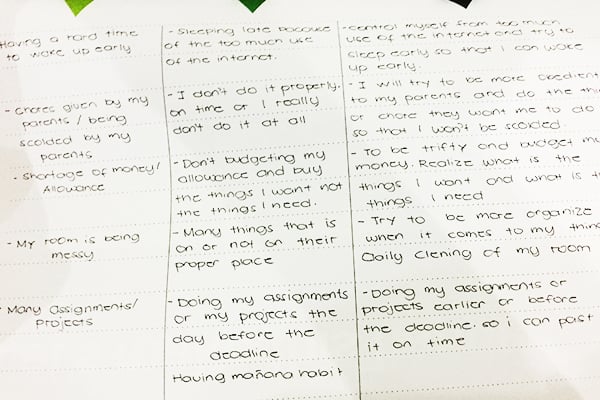 Having a hard time
to wake up early
- Chores given by my
parents / being
scolded by my
parents
- Shortage of money/
Allowance
- My room is being
messy
- Many Assignments/
Projects
- Sleeping late because
of the too much use
of the internet.
- I don't do it properly,
on time or I really
don't do it at all
- Don't budgeting my
allowance and buy
the things I want not
the things I need.
- Many things that is
on or not on their
proper place
- Doing my assignments
or my projects the
day before the
deadline
Having mañana habit
-control myself from too much
use of the internet and try to
sleep early so that I can wake
up early.
- I will try to be more obedient
to my parents and do the
or chore they want me to do
so that I won't be scolded
- To be trifty and budget
money. Realize what is the
things I want and what is
things I need
- Try to be more organize
when it comes to my
Daily Clening of my room
- Doing my assignments or
projects earlier or before
the deadline. so i can past
it on time